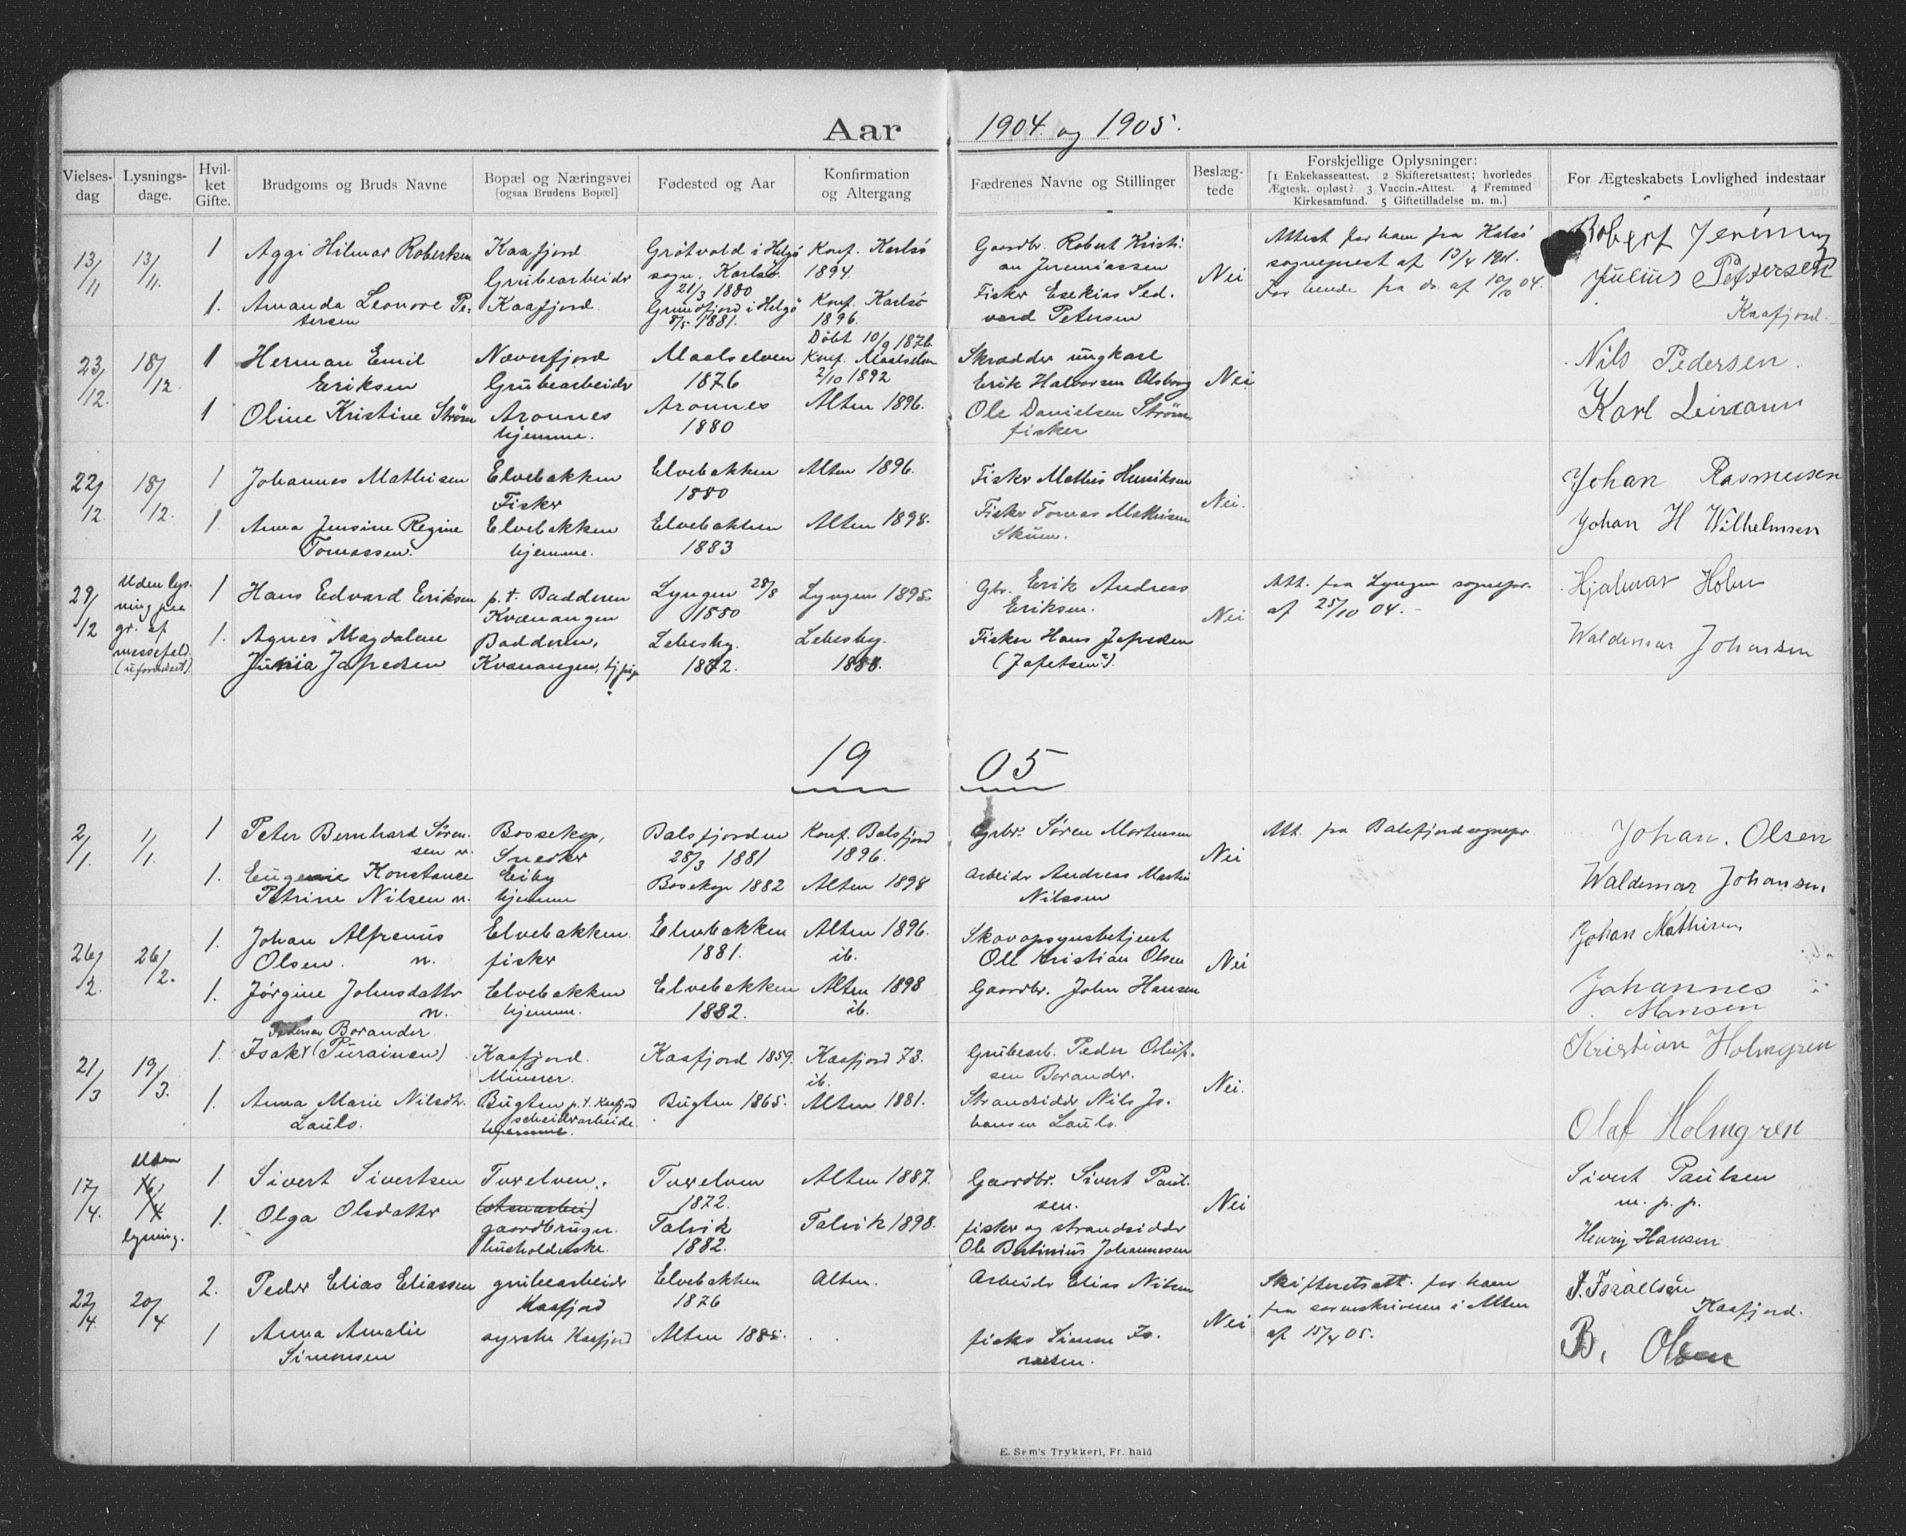 Aar 1904. og 1905.
Vielses-dag | Lysnings-dage. | Hvil-ket Gifte. | Brudgoms og Bruds Navne | Bopæl og Næringsvei [ogsaa Brudens Bopæl] | Fødested og Aar | Konfirmation og Altergang | Fædrenes Navne og Stillinger | Beslæg-tede | Forskjellige Oplysninger: [1 Enkekasseattest. 2 Skifteretsattest; hvorledes Ægtesk. opløst? 3 Vaccin.-Attest. 4 Fremmed Kirkesamfund. 5 Giftetilladelse m. m.] | For Ægteskabets Lovlighed indestaar
13/11 | 13/11. | 1 | Aggi Hilmar Robertsen | Kaafjord. Grubearbeider | Grötvold i Helgö sogn. Karlsö. 21/3 1880 | Konf. Karlsö 1894. | Gaardbr. Robert Kristi-an Jeremiassen | Nei | Attest for ham fra sognepræst af 13/4 1901. | Robert
1. | Amanda Leonore Pe-tersen | Kaafjord. | Grundfjord i Helgö 8/5 1881. | Konf. Karlsö 1896. | Fisker Esekias Sed-vard Petersen | For hende fra do. af 10/10 04. | Julius Petersen Kaafjord.
23/12. | 18/12. | 1 | Herman Emil Eriksen | Næverfjord Grubearbeider | Maalselven 1876 | Döbt 10/9 1876. Konf. Maalselven 2/10 1892 | Skrædder ungkarl Erik Halvorsen Olsborg | Nei | Nils Pedersen.
1 | Oline Kristine Ström | Aronnes hjemme. | Aronnes 1880 | Alten 1896. | Ole Danielsen Ström fisker | Karl
22/12. | 18/12. | 1 | Johannes Mathisen | Elvebakken Fisker | Elvebakken 1880 | Alten 1896. | Fisker Mathis Henriksen | Nei. | Johan Rasmussen
1. | Anna Jensine Regine Tomassen. | Elvebakken hjemme. | Elvebakken 1883 | Alten 1898. | Fisker Tomas Mathisen Skum. | Johan H Wilhelmsen
29/12 | Uden lys-ning paa gr. af messefald. (uforudseet). | 1 | Hans Edvard Eriksen | p.t. Badderen Kvænangen | Lyngen 28/8 1880 | Lyngen 1895. | Gbr. Erik Andreas Eriksen. | Nei | Att. fra Lyngen sognepr. af 25/10 04.- | Hjalmar Holm
1. | Agnes Magdalene Junia Jafedsen | Badderen, Kvænangen, | Lebesby 1872. | Lebesby. 1888. | Fisker Hans Jafedsen (Jafetsen?). | Waldemar Johansen
1905
2/1. | 1/1. | 1 | Peter Bernhard Søren-sen n. | Bossekop, Snedker | Balsfjorden 28/3 1881 | Konf. Balsfjord 1896. | Grbr. Søren Mortensen | Nei | Att. fra Balsfjord sognepr. | Johan. Olsen
1. | Eugenie Konstance Petrine Nilsen n. | Eiby hjemme | Bosekop 1882 | Alten 1898 | Arbeider Andreas Martin Nilssen | Waldemar Johansen.
26/2. | 26/2. | 1. | Johan Alfrenus Olsen. n. | Elvebakken. fisker | Elvebakken 1881. | Alten 1896. ib. | Skovopsynsbetjent Ole Kristian Olsen | Nei | Johan Mathisen
1. | Jørgine Johnsdatter n. | Elvebakken hjemme. | Elvebakken 1882. | Alten 1898 ib. | Gaardbr. John Hansen | Johannes Hansen
21/3 | 19/3. | 1. | Pedersen Borander Isak (Purainen) | Kaafjord. Minerer. | Kaafjord 1859. | Kaafjord 73. ib. | Grubearb. Peder Oluf-sen Borander. | Nei. | Kristian Holmgren
1. | Anna Marie Nilsdtr. Laulo. | Bugten p.t. Kaafjord scheiderarbeide hjemme. | Bugten 1865. | Alten 1881. | Strandsidder Nils Jo-hansen Laulo. | Olaf Holmgren
17/4. | Uden 16/4 lysning. | 1. | Sivert Sivertsen | Tverelven. gaardbruger. | Tverelven 1872. | Alten 1887. | Gaardbr. Sivert Paul-sen. | Nei | Sivert Paulsen m. p. p.
1. | Olga Olsdatter | husholderske. | Talvik 1882. | Talvik 1898. | fisker og strandsidder Ole Bertinius Johannesen | Henrij Hansen
22/4. | 20/4 | 2. | Peder Elias Eliassen | grubearbeider Kaafjord | Elvebakken 1876 | Alten. | Arbeider Elias Nilsen | Nei | Skifteretsatt. for ham fra sorenskriveren i Alten af 15/4 05. | J. Israelsen Kaafjord.
1 | Anna Amalie Simonsen | syerske Kaafjord | Alten 1885. | . . | fisker Simon | B. Olsen
E. Sem's Trykkeri, Fr. hald